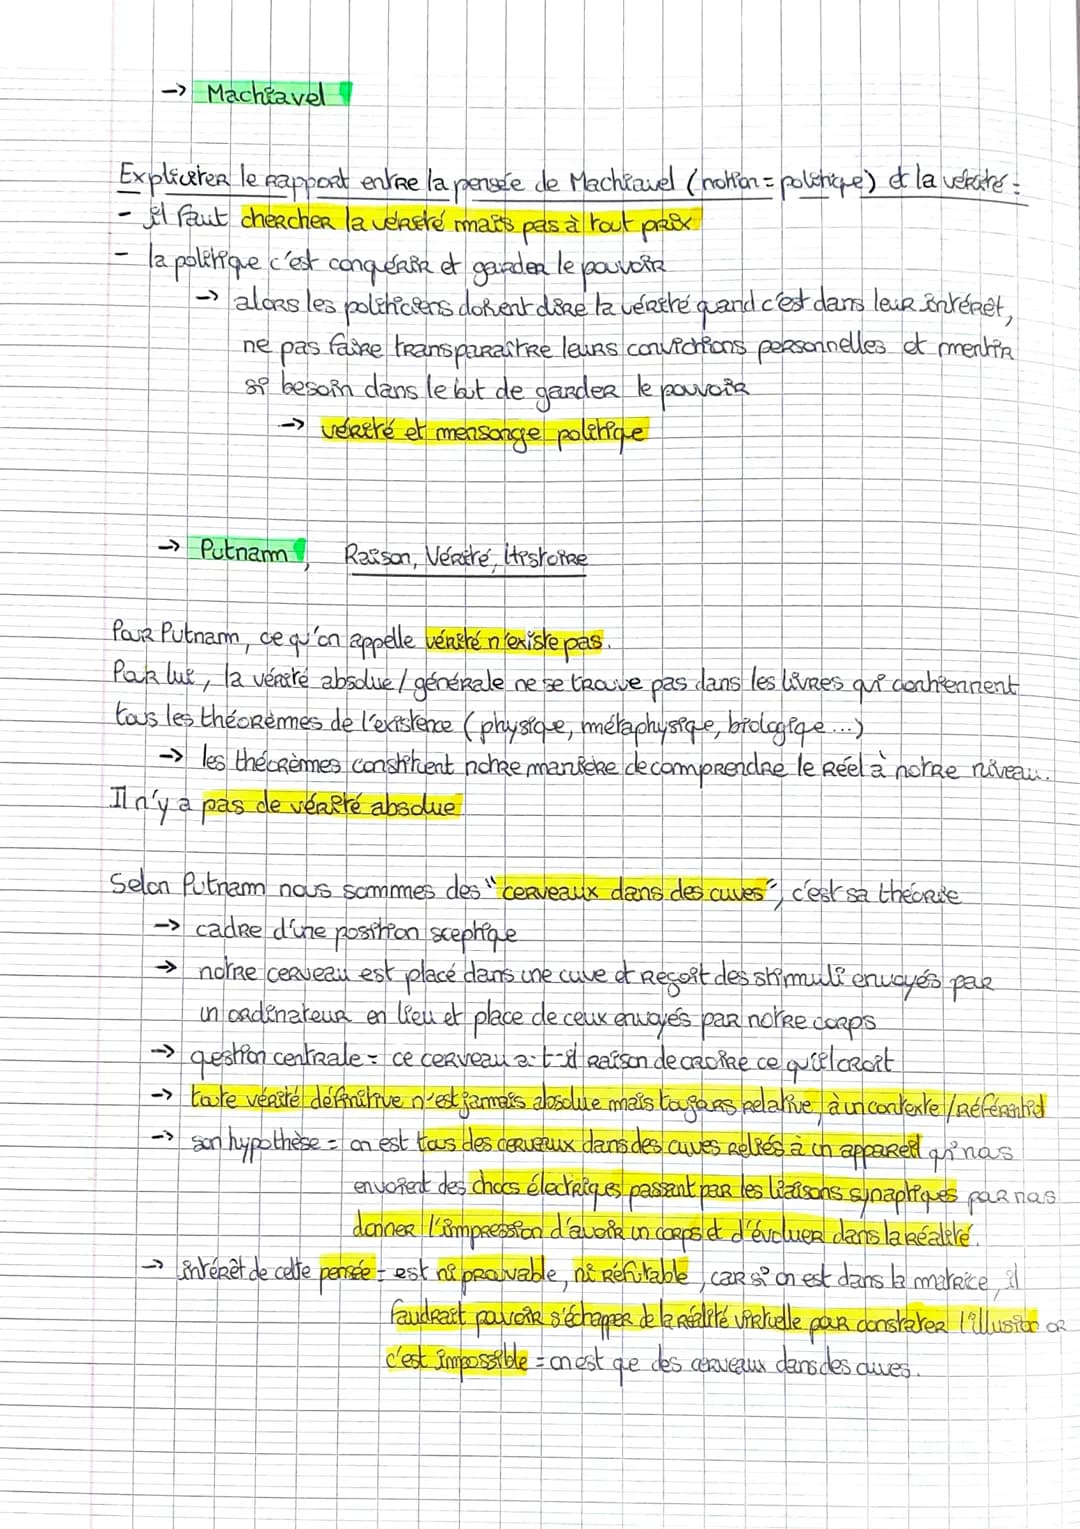 -> Machiavel
Expliciter le rapport entre la pensée de Machiavel (notion = politique) et la vérité :
- il faut chercher la vérité mais pas à tout prix
- la politique c'est conquérir et garder le pouvoir
-> alors les politiciens doivent dire la vérité quand c'est dans leur intérêt,
ne pas faire transparaître leurs convictions personnelles et mentir
si besoin dans le but de garder le pouvoir
-> vérité et mensonge politique
-> Putnam, Raison, Vérité, Histoire
Pour Putnam, ce qu'on appelle vérité n'existe pas.
Pour lui, la vérité absolue / générale ne se trouve pas dans les livres qui contiennent
tous les théorèmes de l'existence (physique, métaphysique, biologique...)
-> les théorèmes constituent notre manière de comprendre le réel à notre niveau.
Il n'y a pas de vérité absolue
Selon Putnam nous sommes des "cerveaux dans des cuves", c'est sa théorie
-> cadre d'une position sceptique
-> notre cerveau est placé dans une cuve et reçoit des stimuli envoyés par
un ordinateur en lieu et place de ceux envoyés par notre corps
-> question centrale = ce cerveau a-t-il raison de croire ce qu'il croit
-> toute vérité définitive n'est jamais absolue mais toujours relative, à un contexte / référentiel
-> son hypothèse = on est tous des cerveaux dans des cuves reliés à un appareil qui nous
envoient des chocs électriques passant par les liaisons synaptiques pour nous
donner l'impression d'avoir un corps et d'évoluer dans la réalité.
-> intérêt de cette pensée = est ni prouvable, ni réfutable, car si on est dans la matrice, il
faudrait pouvoir s'échapper de la réalité virtuelle pour constater l'illusion or
c'est impossible = on est que des cerveaux dans des cuves.